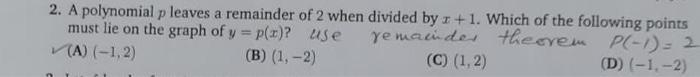 2. A polynomial p leaves a remainder of 2 when divided by x + 1. Which of the following points
must lie on the graph of y = p(x)? use remainder theorem P(-1) = 2
✓(A) (−1, 2) (B) (1, −2) (C) (1, 2) (D) (−1, −2)